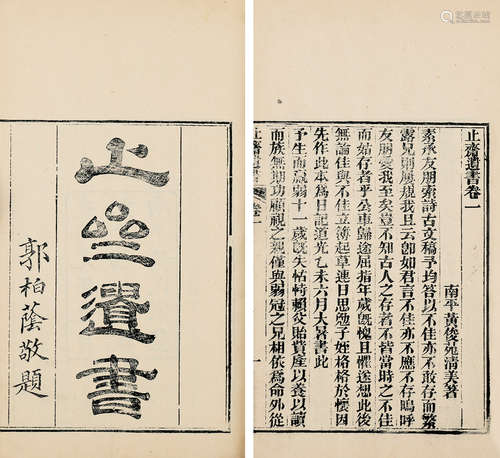 止齋遺書卷一
南平 黃俊苑清美著
素承友朋索詩古文稿予均答以不佳亦不敢存而繁
露兄則屢規我且云卽如君言不佳亦不應不存嗚呼
友朋愛我至矣曾不知古人之存者不皆當時之不佳
而始存者乎公車歸途屈指年歲旣愧且懼遂想此後
無論佳與不佳立簿起草連日思勉子姪格格於懷因
先作此本為日記道光乙未六月大暑書此
予生而羸弱十一歲怙恃賴父貽貲產以養以讀
而族無期功顧視之親僅與弱冠之兄相依為命外從
止齋遺書 卷一 一
止亝遺書
郭柏蔭敬題